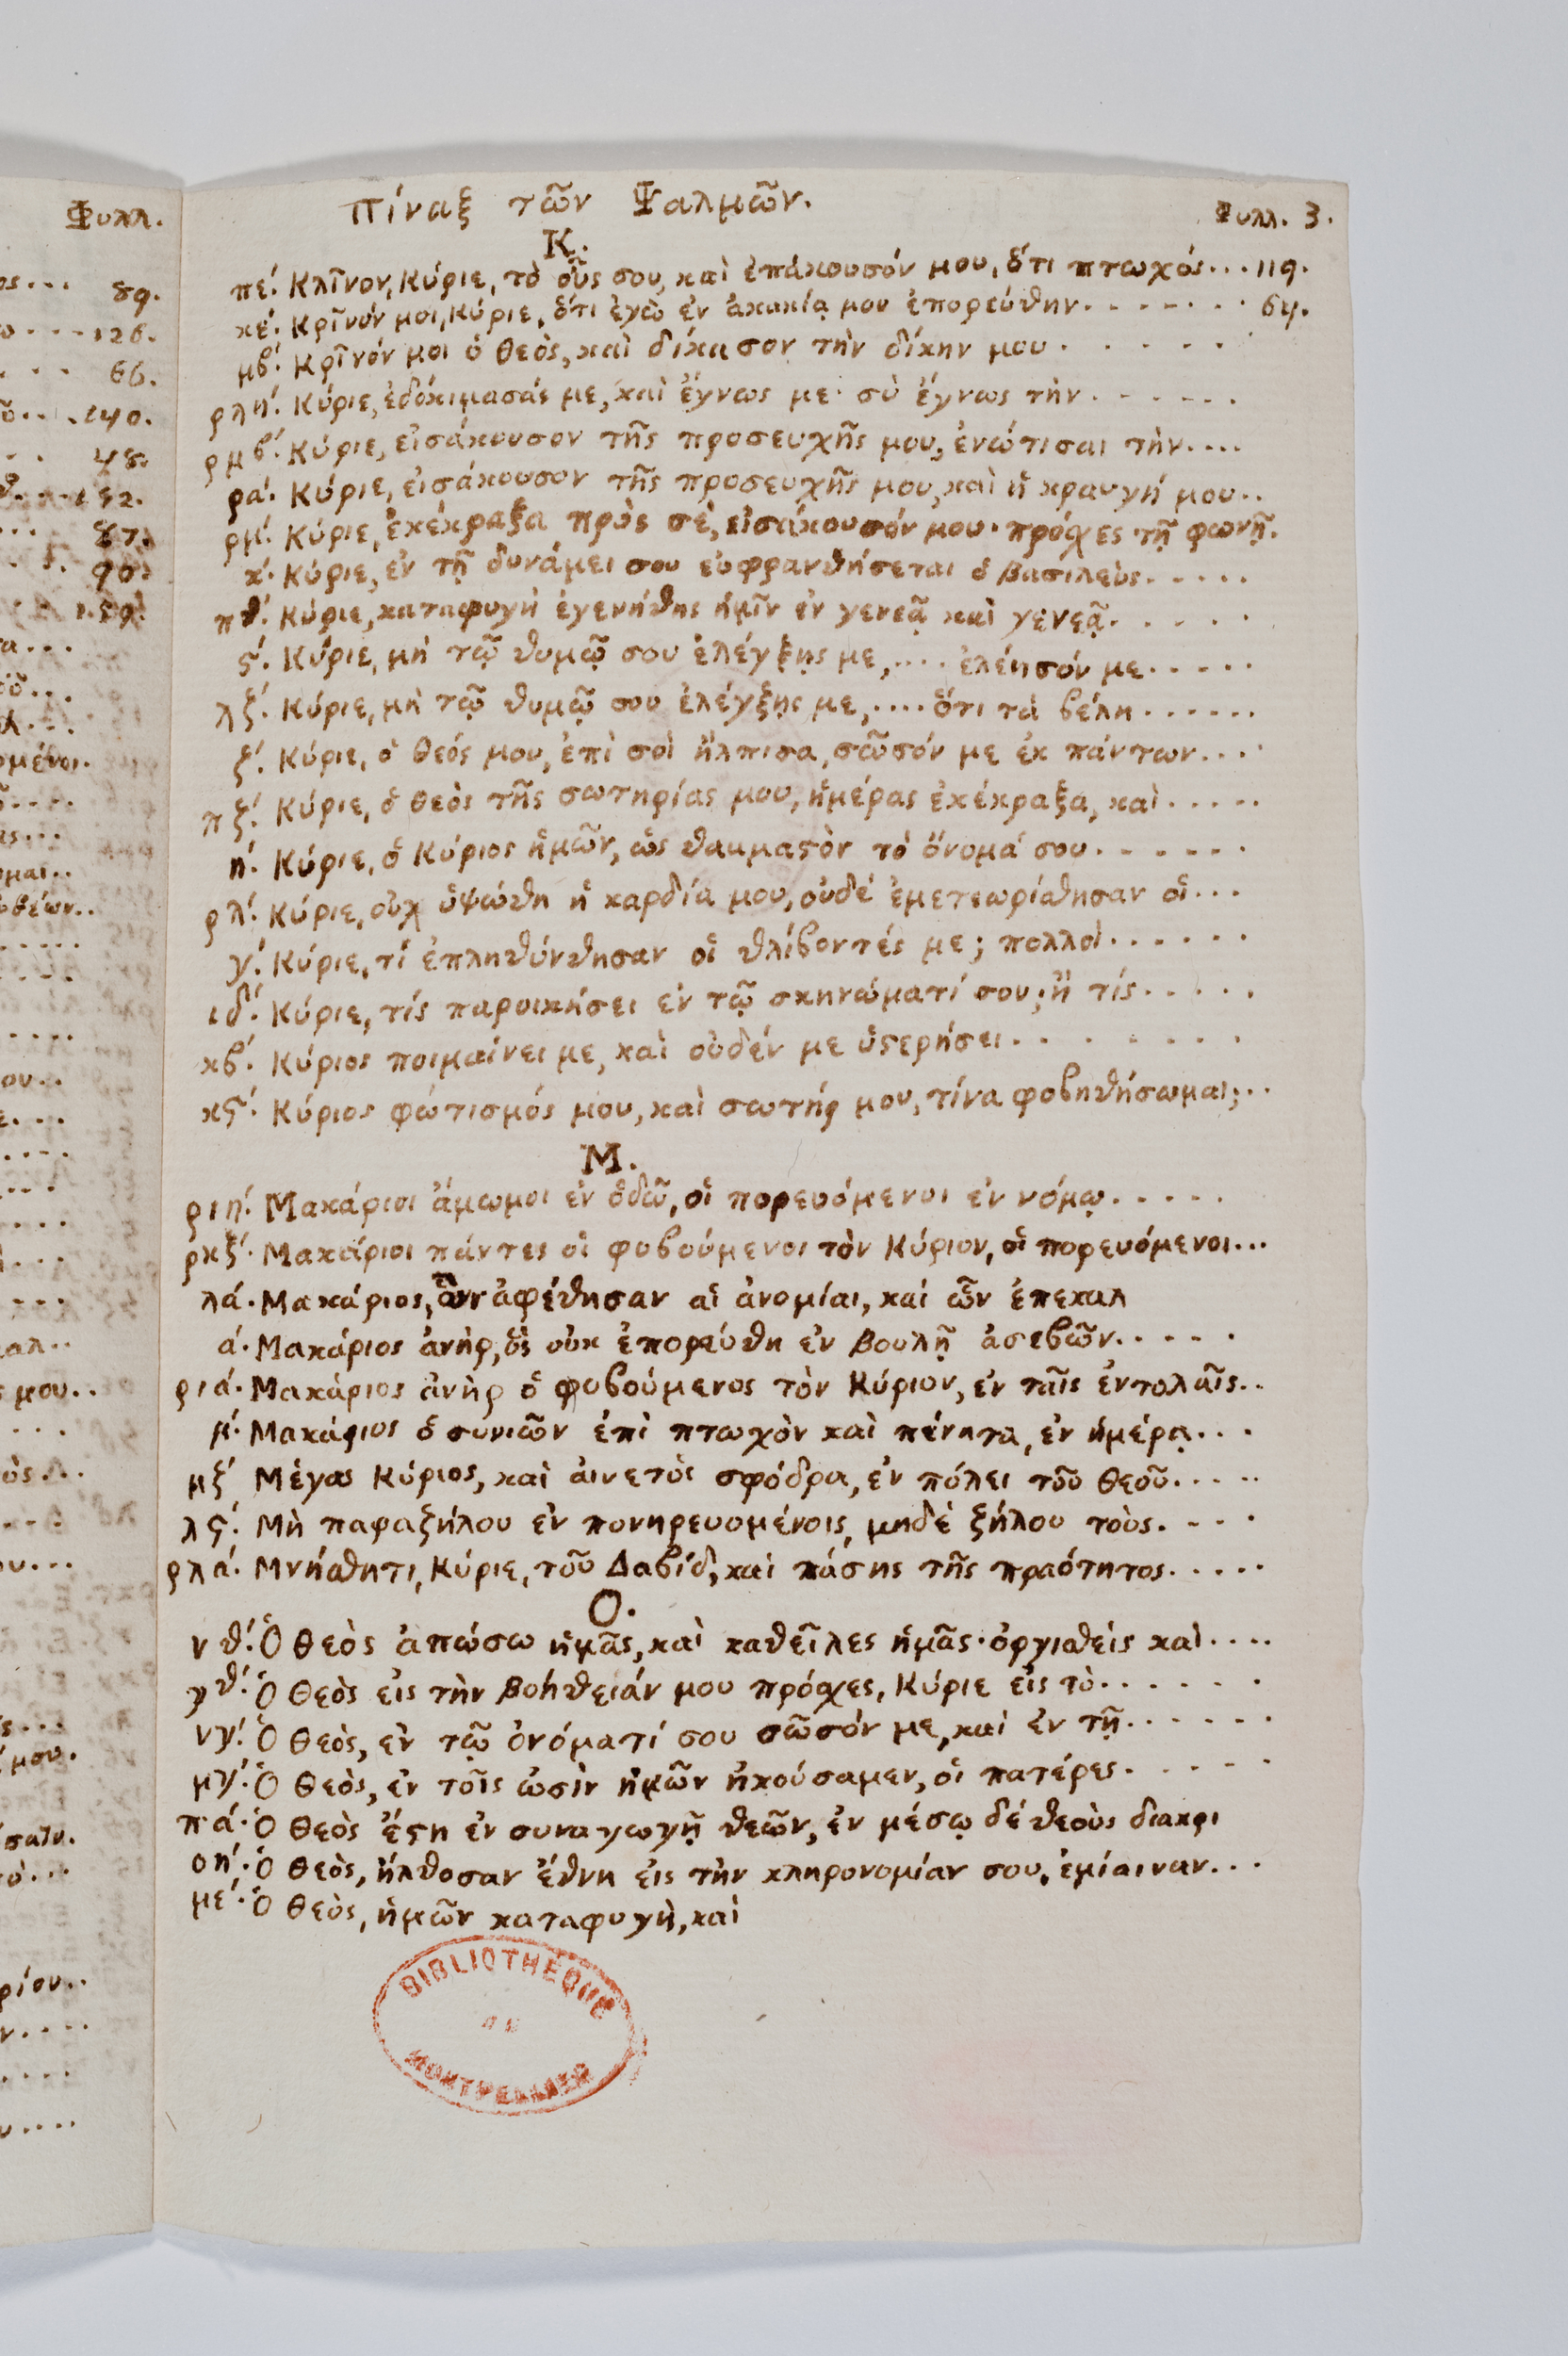 Φυλλ.
89.
126.
66.
140.
48.
152.
87.
90.
159.
Πίναξ τῶν Ψαλμῶν.
Φυλλ. 3.
Κ.
πέ. Κλῖνον, Κύριε, τὸ οὖς σου, καὶ ἐπάκουσόν μου, ὅτι πτωχός... 119.
κέ. Κρῖνόν μοι, Κύριε, ὅτι ἐγὼ ἐν ἀκακίᾳ μου ἐπορεύθην....... 64.
μβ́. Κρῖνόν μοι ὁ Θεὸς, καὶ δίκασον τὴν δίκην μου.....
ρλή. Κύριε, ἐδοκίμασάς με, καὶ ἔγνως με· σὺ ἔγνως τὴν......
ρμβ́. Κύριε, εἰσάκουσον τῆς προσευχῆς μου, ἐνώτισαι τὴν....
ρά. Κύριε, εἰσάκουσον τῆς προσευχῆς μου, καὶ ἡ κραυγή μου..
ρμ́. Κύριε, ἐκέκραξα πρὸς σὲ, εἰσάκουσόν μου· πρόσχες τῇ φωνῇ.
κ́. Κύριε, ἐν τῇ δυνάμει σου εὐφρανθήσεται ὁ βασιλεὺς.....
πθ́. Κύριε, καταφυγὴ ἐγενήθης ἡμῖν ἐν γενεᾷ καὶ γενεᾷ.....
ς́. Κύριε, μὴ τῷ θυμῷ σου ἐλέγξῃς με,.... ἐλέησόν με.....
λζ́. Κύριε, μὴ τῷ θυμῷ σου ἐλέγξῃς με,.... ὅτι τὰ βέλη......
ζ́. Κύριε, ὁ Θεός μου, ἐπὶ σοὶ ἤλπισα, σῶσόν με ἐκ πάντων....
πζ́. Κύριε, ὁ Θεὸς τῆς σωτηρίας μου, ἡμέρας ἐκέκραξα, καὶ.....
ή. Κύριε, ὁ Κύριος ἡμῶν, ὡς θαυμαϛὸν τὸ ὄνομά σου......
ρλ́. Κύριε, οὐχ ὑψώθη ἡ καρδία μου, οὐδὲ ἐμετεωρίσθησαν οἱ...
γ́. Κύριε, τί ἐπληθύνθησαν οἱ θλίβοντές με; πολλοὶ......
ιδ́. Κύριε, τίς παροικήσει ἐν τῷ σκηνώματί σου; ἢ τίς.....
κβ́. Κύριος ποιμαίνει με, καὶ οὐδέν με ὑϛερήσει........
κς́. Κύριος φώτισμός μου, καὶ σωτήρ μου, τίνα φοβηθήσωμαι;..
Μ.
ριή. Μακάριοι ἄμωμοι ἐν ὁδῶ, οἱ πορευόμενοι ἐν νόμῳ.....
ρκζ́. Μακάριοι πάντες οἱ φοβούμενοι τὸν Κύριον, οἱ πορευόμενοι...
λά. Μακάριος, ὧν ἀφέθησαν αἱ ἀνομίαι, καὶ ὧν ἐπεκαλ
ά. Μακάριος ἀνὴρ, ὃς οὐκ ἐπορεύθη ἐν βουλῇ ἀσεβῶν.....
ριά. Μακάριος ἀνὴρ ὁ φοβούμενος τὸν Κύριον, ἐν ταῖς ἐντολαῖς..
μ́. Μακάριος ὁ συνιῶν ἐπὶ πτωχὸν καὶ πένητα, ἐν ἡμέρᾳ...
μζ́ Μέγας Κύριος, καὶ αἰνετὸς σφόδρα, ἐν πόλει τοῦ Θεοῦ.....
λς́. Μὴ παραζήλου ἐν πονηρευομένοις, μηδὲ ζήλου τοὺς....
ρλά. Μνήσθητι, Κύριε, τοῦ Δαβίδ, καὶ πάσης τῆς πραότητος.....
Ο.
νθ́. Ὁ Θεὸς ἀπώσω ἡμᾶς, καὶ καθεῖλες ἡμᾶς· ὀργισθεὶς καὶ....
ξθ́. Ὁ Θεὸς εἰς τὴν βοήθειάν μου πρόσχες, Κύριε εἰς τὸ......
νγ́. Ὁ Θεὸς, ἐν τῷ ὀνόματί σου σῶσόν με, καὶ ἐν τῇ......
μγ́. Ὁ Θεὸς, ἐν τοῖς ὠσὶν ἡμῶν ἠκούσαμεν, οἱ πατέρες.....
πά. Ὁ Θεὸς ἔϛη ἐν συναγωγῇ θεῶν, ἐν μέσῳ δὲ θεοὺς διακρι
οή. Ὁ Θεὸς, ἤλθοσαν ἔθνη εἰς τὴν κληρονομίαν σου, ἐμίαιναν...
μέ. Ὁ Θεὸς, ἡμῶν καταφυγὴ, καὶ
BIBLIOTHÈQUE
DE
MONTPELLIER